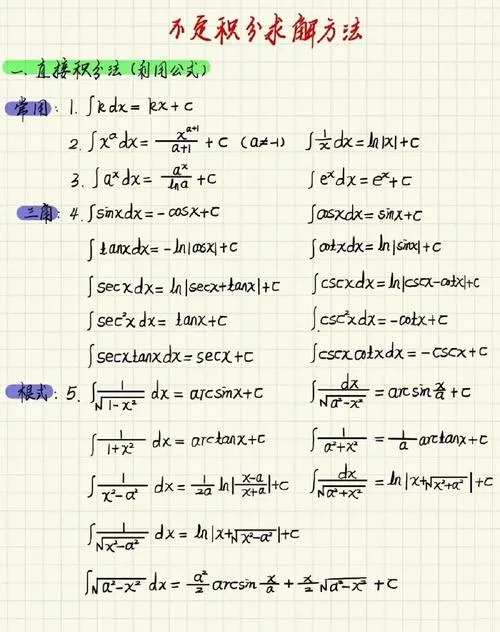 不定积分求解方法
一、直接积分法(利用公式)
常用: 1. ∫kdx = kx + C
2. ∫x^a dx = x^(a+1)/(a+1) + C (a≠-1) ∫1/x dx = ln|x| + C
3. ∫a^x dx = a^x/lna + C ∫e^x dx = e^x + C
三角: 4. ∫sinxdx = -cosx + C ∫cosxdx = sinx + C
∫tanxdx = -ln|cosx| + C ∫cotxdx = ln|sinx| + C
∫secxdx = ln|secx+tanx| + C ∫cscxdx = ln|cscx-cotx| + C
∫sec²xdx = tanx + C ∫csc²xdx = -cotx + C
∫secxtanxdx = secx + C ∫cscxcotxdx = -cscx + C
根式: 5. ∫1/√(1-x²) dx = arcsinx + C ∫dx/√(a²-x²) = arcsin x/a + C
∫1/(1+x²) dx = arctanx + C ∫1/(a²+x²) = 1/a arctanx + C
∫1/(x²-a²) dx = 1/2a ln|(x-a)/(x+a)| + C ∫dx/√(a²+x²) = ln|x+√(x²+a²)| + C
∫1/√(x²-a²) dx = ln|x+√(x²-a²)| + C
∫√(a²-x²) dx = a²/2 arcsin x/a + x/2 √(a²-x²) + C